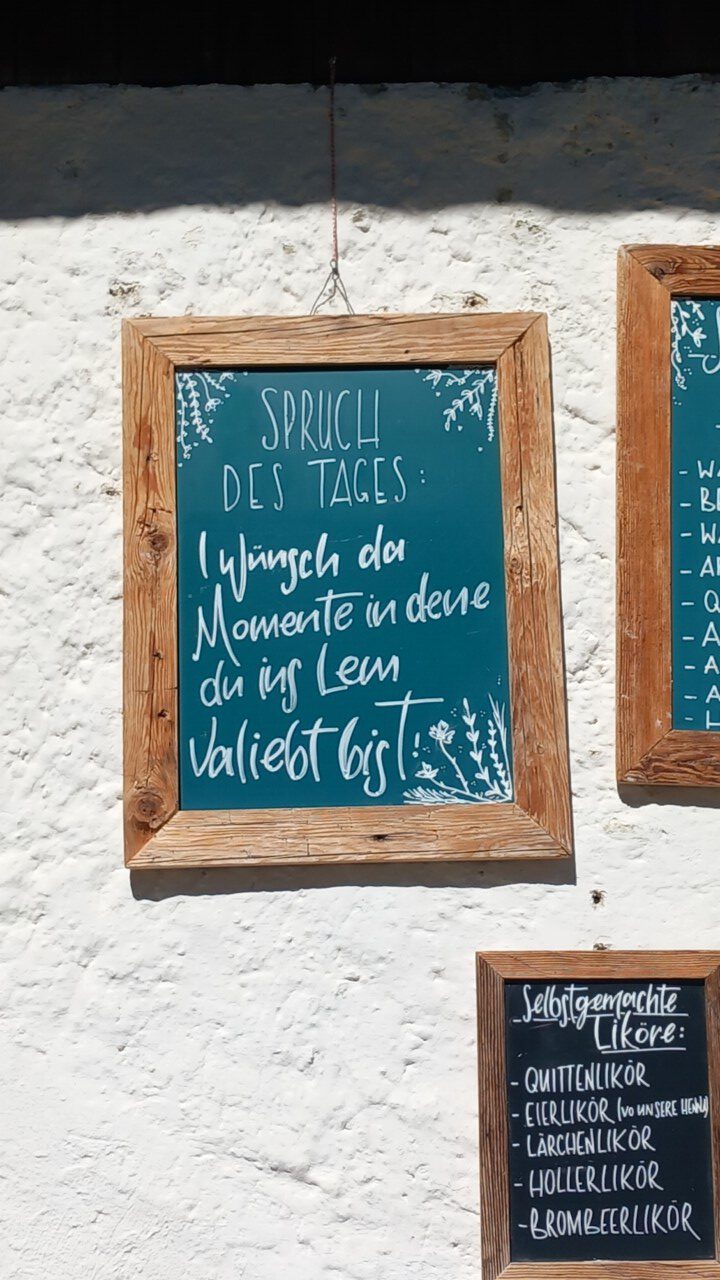 SPRUCH
DES TAGES:
I wünsch da
Momente in dene
du ins Lem
valiebt bist!
- WA
- BE
- WA
- AP
- Q
- A
- A
- A
Selbstgemachte
Liköre:
- QUITTENLIKÖR
- EIERLIKÖR (VO UNSERE HENN)
- LÄRCHENLIKÖR
- HOLLERLIKÖR
- BROMBEERLIKÖR